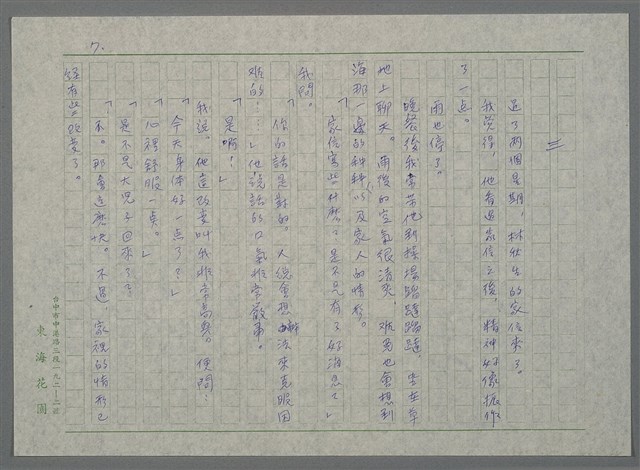 7.
二
過了兩個星期，林炊生的家信來了。
我覺得，他看過家信之後，精神好像振作
了一点。
雨也停了。
晚餐後我常常带他到操場踏踏，坐在草
地上聊天。雨後的空氣很清爽。难免也會想到
海那一邊的种种以及家人的情形。
「家信寫些什麼？是不是有了好消息？」
我問。
「你的話是對的。人總會想辦法來克服困
难的……」他說話的口氣非常嚴肅。
「是啊！」
我說。他這改变叫我非常高興。便問：
「今天身体好一点了？」
「心裡舒服一点。」
「是不是大兒子回來了？」
「不。那會這麽快。不過，家裡的情形已
經有些改变了。
台中市中港路三段
東海花園